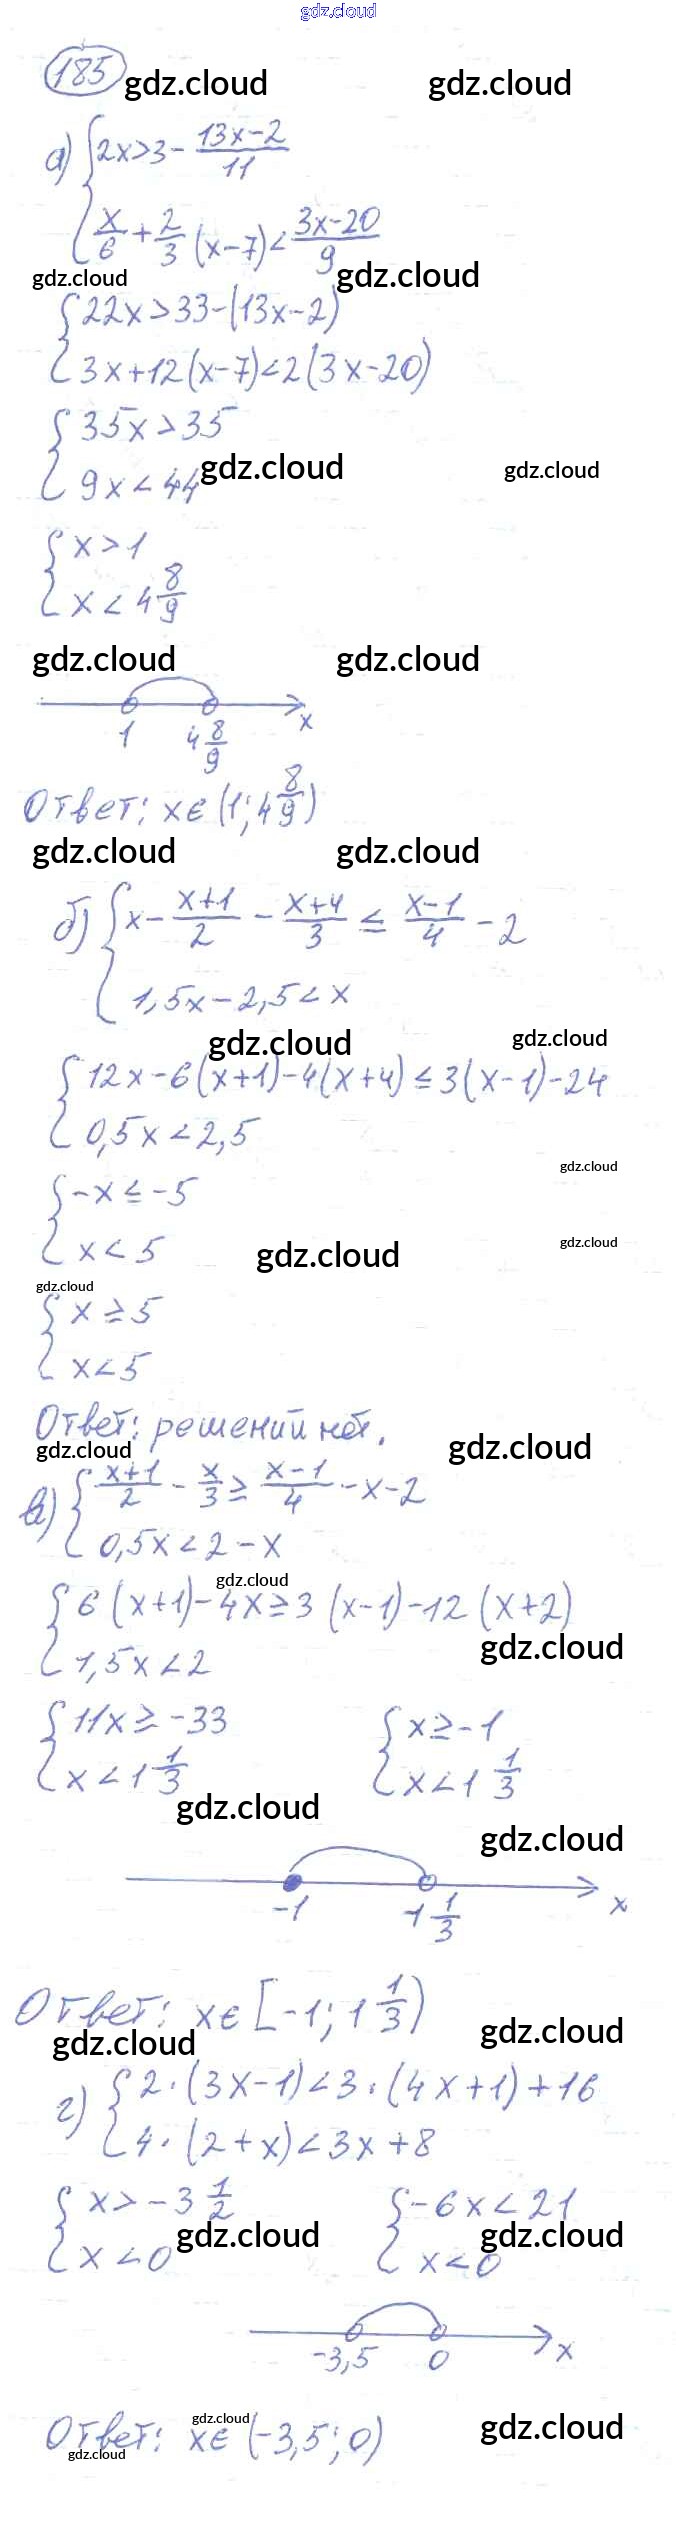 gdz.cloud
185
gdz.cloud gdz.cloud
а) { 2x>3 - (13x-2)/11
x/6 + 2/3 (x-7) < (3x-20)/9
gdz.cloud gdz.cloud
{ 22x>33-(13x-2)
3x+12(x-7)<2(3x-20)
{ 35x>35
9x<44
gdz.cloud gdz.cloud
{ x>1
x<4 8/9
gdz.cloud gdz.cloud
1 4 8/9 x
Ответ: x∈(1; 4 8/9)
gdz.cloud gdz.cloud
б) { x - (x+1)/2 - (x+4)/3 ≤ (x-1)/4 - 2
1,5x-2,5<x
gdz.cloud gdz.cloud
{ 12x-6(x+1)-4(x+4)≤3(x-1)-24
0,5x<2,5
gdz.cloud
{ -x≤-5
x<5
gdz.cloud gdz.cloud
gdz.cloud
{ x≥5
x<5
Ответ: решений нет.
gdz.cloud gdz.cloud
в) { (x+1)/2 - x/3 ≥ (x-1)/4 - x - 2
0,5x<2-x
gdz.cloud
{ 6(x+1)-4x≥3(x-1)-12(x+2)
1,5x<2
gdz.cloud
{ 11x≥-33 { x≥-1
x<1 1/3 x<1 1/3
gdz.cloud gdz.cloud
-1 1 1/3 x
Ответ: x∈[-1; 1 1/3)
gdz.cloud gdz.cloud
г) { 2·(3x-1)<3·(4x+1)+16
4·(2+x)<3x+8
{ x>-3 1/2 { -6x<21
x<0 x<0
gdz.cloud gdz.cloud
-3,5 0 x
Ответ: x∈(-3,5; 0)
gdz.cloud gdz.cloud
gdz.cloud